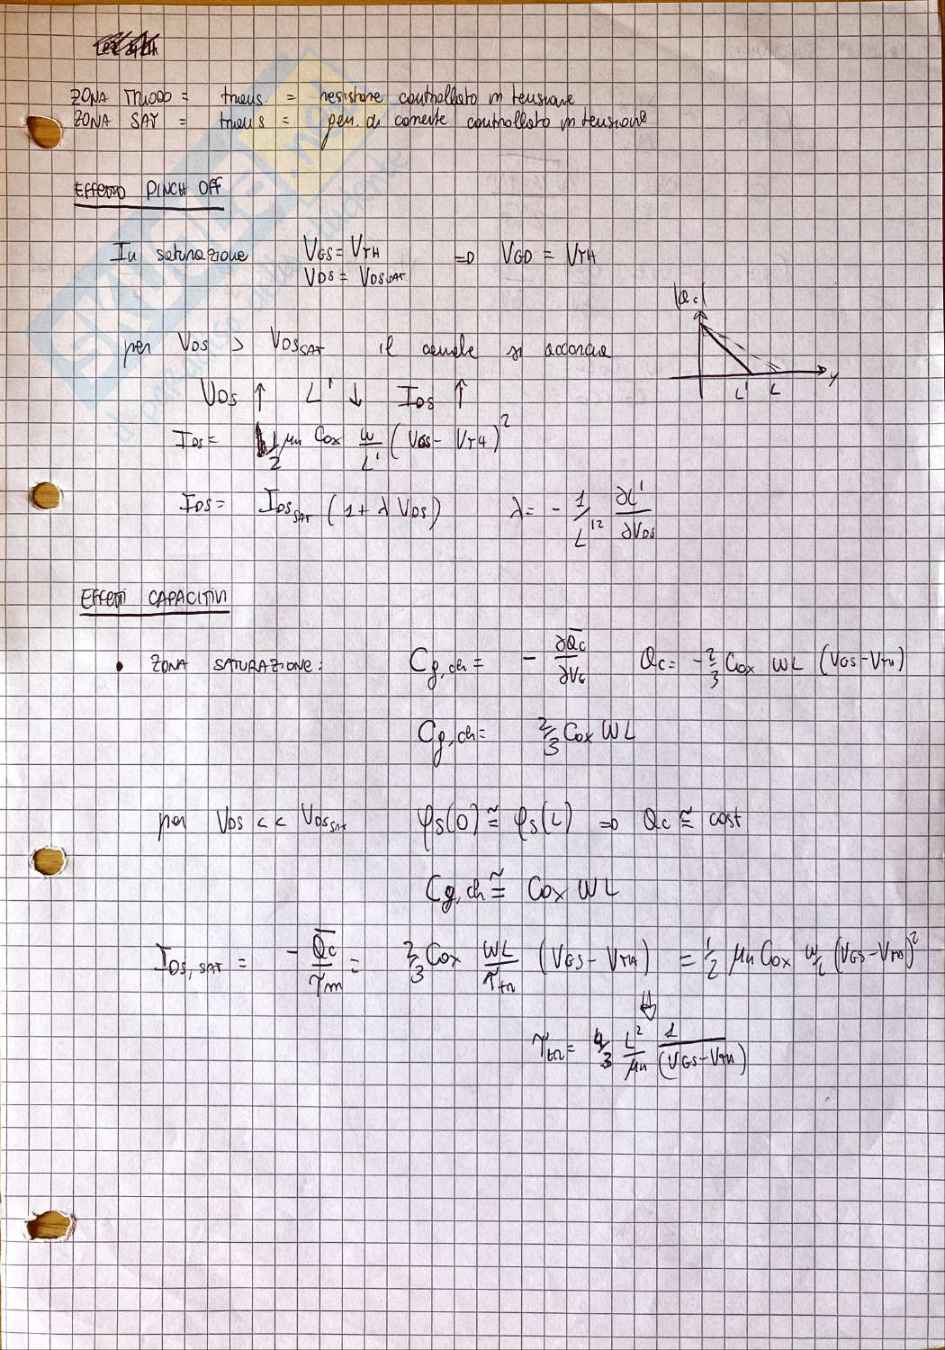 ZONA TRIODO = tmos = resistore controllato in tensione
ZONA SAT = tmos = gen. di corrente controllato in tensione
EFFETTO PINCH OFF
In saturazione VGS = VTH => VGD = VTH
VDS = VDSSAT
|Qc|
per VDS > VDSSAT il canale si accorcia
y
L' L
VDS ↑ L' ↓ IDS ↑
IDS = 1/2 μn Cox W/L' (VGS - VTH)²
IDS = IDSSAT (1 + λ VDS) λ = - 1/L'² ∂L'/∂VDS
EFFETTI CAPACITIVI
• ZONA SATURAZIONE: Cg,ch = - ∂Q̅c/∂VG Qc = -2/3 Cox WL (VGS - VTH)
Cg,ch = 2/3 Cox WL
per VDS << VDSSAT φs(0) ≅ φs(L) => Qc ≅ cost
Cg,ch ≅ Cox WL
IDS,SAT = - Q̅c/τtn = 2/3 Cox WL/τtn (VGS - VTH) = 1/2 μn Cox W/L (VGS - VTH)²
⇓
τtn = 4/3 L²/μn 1/(VGS - VTH)